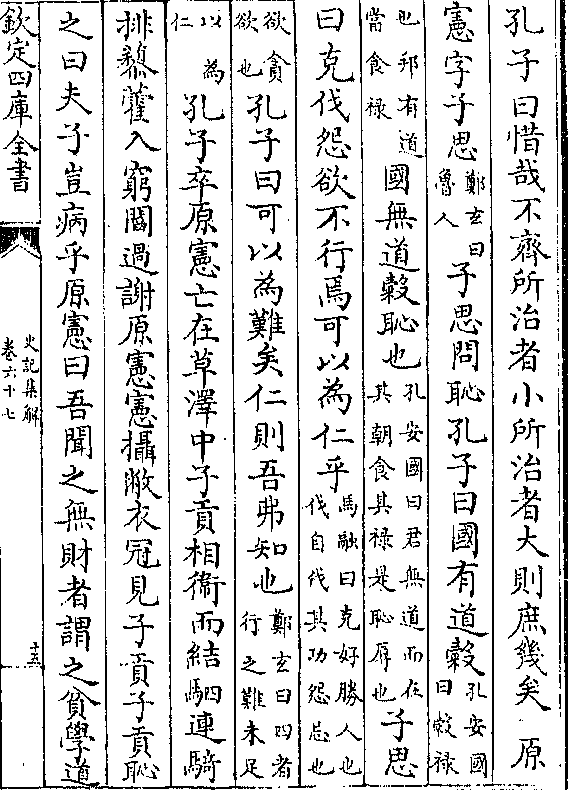 孔子曰惜哉不齊所治者小所治者大則庶幾矣 原
憲字子思鄭玄曰魯人子思問恥孔子曰國有道穀孔安國曰穀禄
也邦有道當食禄國無道穀恥也孔安國曰君無道而在其朝食其禄是恥辱也子思
曰克伐怨欲不行焉可以為仁乎馬融曰克好勝人也伐自伐其功怨忌也
欲貪欲也孔子曰可以為難矣仁則吾弗知也鄭玄曰四者行之難未足
以為仁孔子卒原憲亡在草澤中子貢相衛而結駟連騎
排藜藿入窮閻過謝原憲憲攝敝衣冠見子貢子貢恥
之曰夫子豈病乎原憲曰吾聞之無財者謂之貧學道
欽定四庫全書
史記集解
卷六十七
十五